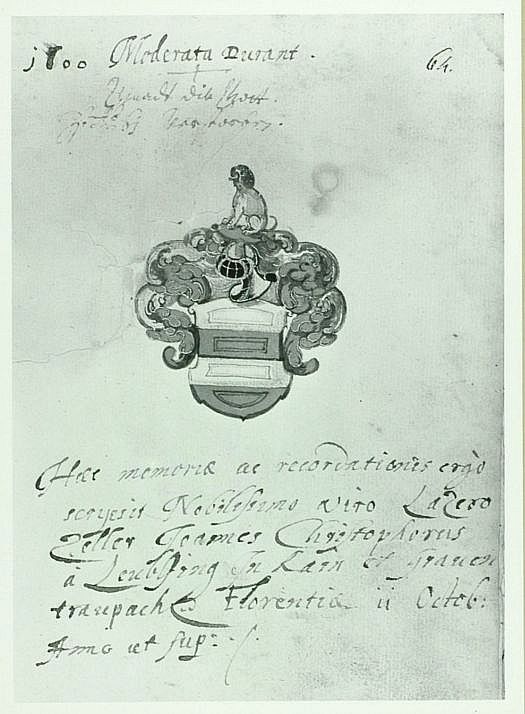 1600 Moderata Durant. 64.
Hæc memoriæ ac recordationis ergò
scripsit Nobilissimo viro Lazero
Zeller Joannes Christophorus
à
traupach Florentiæ ii Octob:
Anno ut sup: